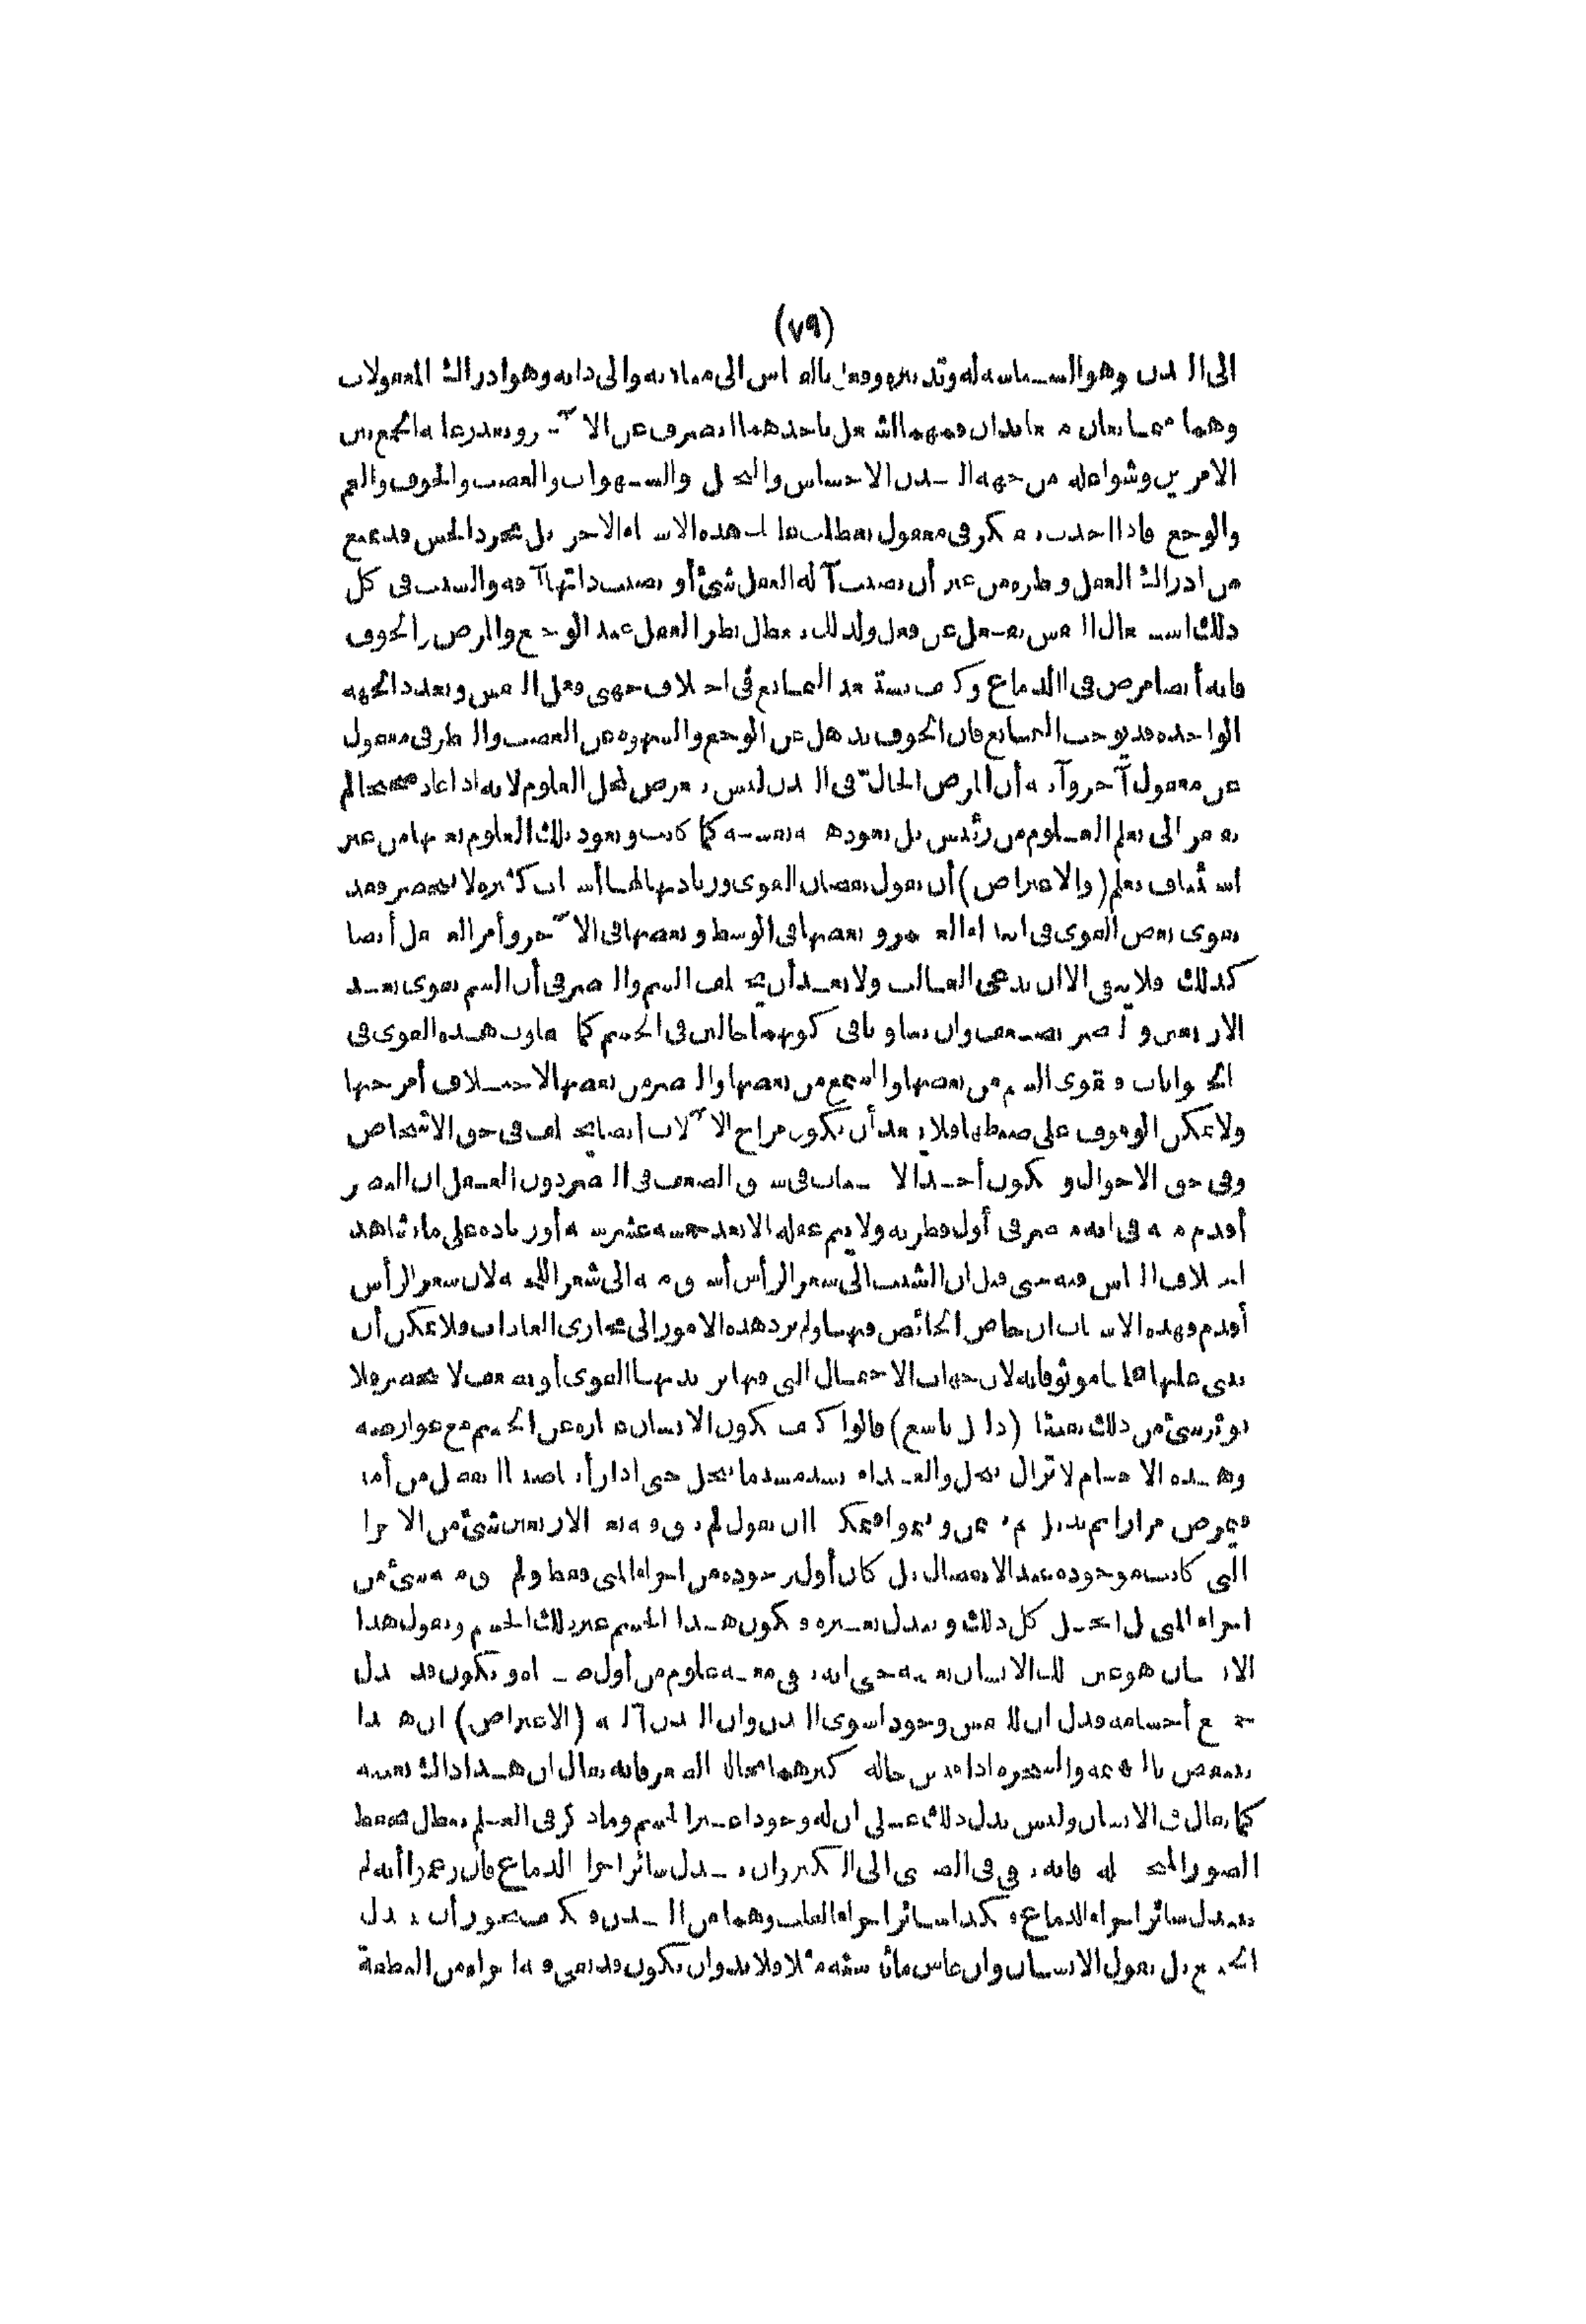 (٧٩)
الى البدن وهو السياسة له وتدبيره وفعل بالقياس الى مباديه والى ذاته وهو ادراك المعقولات
وهما متمانعان متعاندان فمهما اشتغل باحدهما انصرف عن الآخر وتعذر عليه الجمع بين
الامرين وشواغله من جهة البدن الاحساس والتخيل والشهوات والغضب والخوف والغم
والوجع فاذا أخذت تفكر فى معقول تعطلت عليك هذه الاشياء الاخر بل مجرد الحس قد يمنع
من ادراك العقل ونظره من غير أن يصيب آلة العقل شئ أو يصيب ذاتها آفة والسبب فى كل
ذلك اشتغال النفس بفعل عن فعل ولذلك يتعطل نظر العقل عند الوجع والمرض والخوف
فانه أيضا مرض فى الدماغ وكيف يستبعد التمانع فى اختلاف جهتى فعل النفس وتعدد الجهة
الواحدة قد يوجب التمانع فان الخوف يذهل عن الوجع والشهوة عن الغضب والنظر فى معقول
عن معقول آخر وآية أن المرض الحال فى البدن ليس يتعرض لمحل العلوم لانه اذا عاد صحيحا لم
يفتقر الى تعلم العلوم من رأس بل تعود هيئة نفسه كما كانت وتعود تلك العلوم بعينها من غير
استئناف تعلم (والاعتراض) أن نقول نقصان القوى وزيادتها لها أسباب كثيرة لا تنحصر فقد
يقوى بعض القوى فى ابتداء العمر وبعضها فى الوسط وبعضها فى الآخر وأمر العقل أيضا
كذلك فلا يبقى الا ان يدعى الغالب ولا بعد أن يختلف الشم والبصر فى أن الشم يقوى بعد
الاربعين والبصر يضعف وان تساويا فى كونهما حالين فى الجسم كما تتفاوت هذه القوى فى
الحيوانات فيقوى الشم من بعضها والسمع من بعضها والبصر من بعضها لاختلاف أمزجتها
ولا يمكن الوقوف على ضبطها فلا يبعد أن يكون مزاج الآلات أيضا يختلف فى حق الاشخاص
وفى حق الاحوال ويكون أحد الاسباب فى سبق الضعف فى البصر دون العقل ان البصر
أقدم منه فى انه مبصر فى أول فطرته ولا يتم عقله الا بعد خمسة عشر سنة أو زيادة على ما يشاهد
اختلاف الناس فيه حتى قيل ان الشيب الى شعر الرأس أسبق منه الى شعر اللحية لان شعر الرأس
أقدم فهذه الاسباب ان خاض الخائض فيها ولم يرد هذه الامور الى مجارى العادات فلا يمكن أن
يبنى عليها علما موثوقا به لان جهات الاحتمال التى فيها تزيد بها القوى أو تضعف لا تنحصر فلا
يورث شئ من ذلك يقينا (دليل تاسع) قالوا كيف يكون الانسان عبارة عن الجسم مع عوارضه
وهذه الاجسام لا تزال تنحل والغذاء يسد مسد ما ينحل حتى اذا رأينا صبيا انفصل من أمه
فيمرض مرارا ثم يذبل ثم يسمن وينمو فيمكننا ان نقول لم يبق فيه بعد الاربعين شئ من الاجزاء
التى كانت موجودة عند الانفصال بل كان أول وجوده من اجزاء المنى فقط ولم يبق منه شئ من
اجزاء المنى بل انحل كل ذلك وتبدل بغيره فيكون هذا الجسم غير ذلك الجسم ونقول هذا
الانسان هو عين ذلك الانسان بعينه حتى انه يبقى معه علوم من أول صباه ويكون قد تبدل
جميع أجسامه فدل ان للنفس وجودا سوى البدن وان البدن آلته (الاعتراض) ان هذا
ينتقض بالبهيمة والشجرة اذا قيس حالة كبرهما بحالة الصغر فانه يقال ان هذا ذاك بعينه
كما يقال فى الانسان وليس يدل ذلك على ان له وجودا غير الجسم وما ذكر فى العلم يبطل بحفظ
الصور المتخيلة فانه يبقى فى الصبى الى الكبر وان تبدل سائر اجزاء الدماغ فان زعموا أنه لم
يتبدل سائر اجزاء الدماغ فكذا سائر اجزاء القلب وهما من البدن فكيف يتصور أن يتبدل
الجميع بل نقول الانسان وان عاش مائة سنة مثلا فلا بد وان يكون قد بقى فيه اجزاء من النطفة